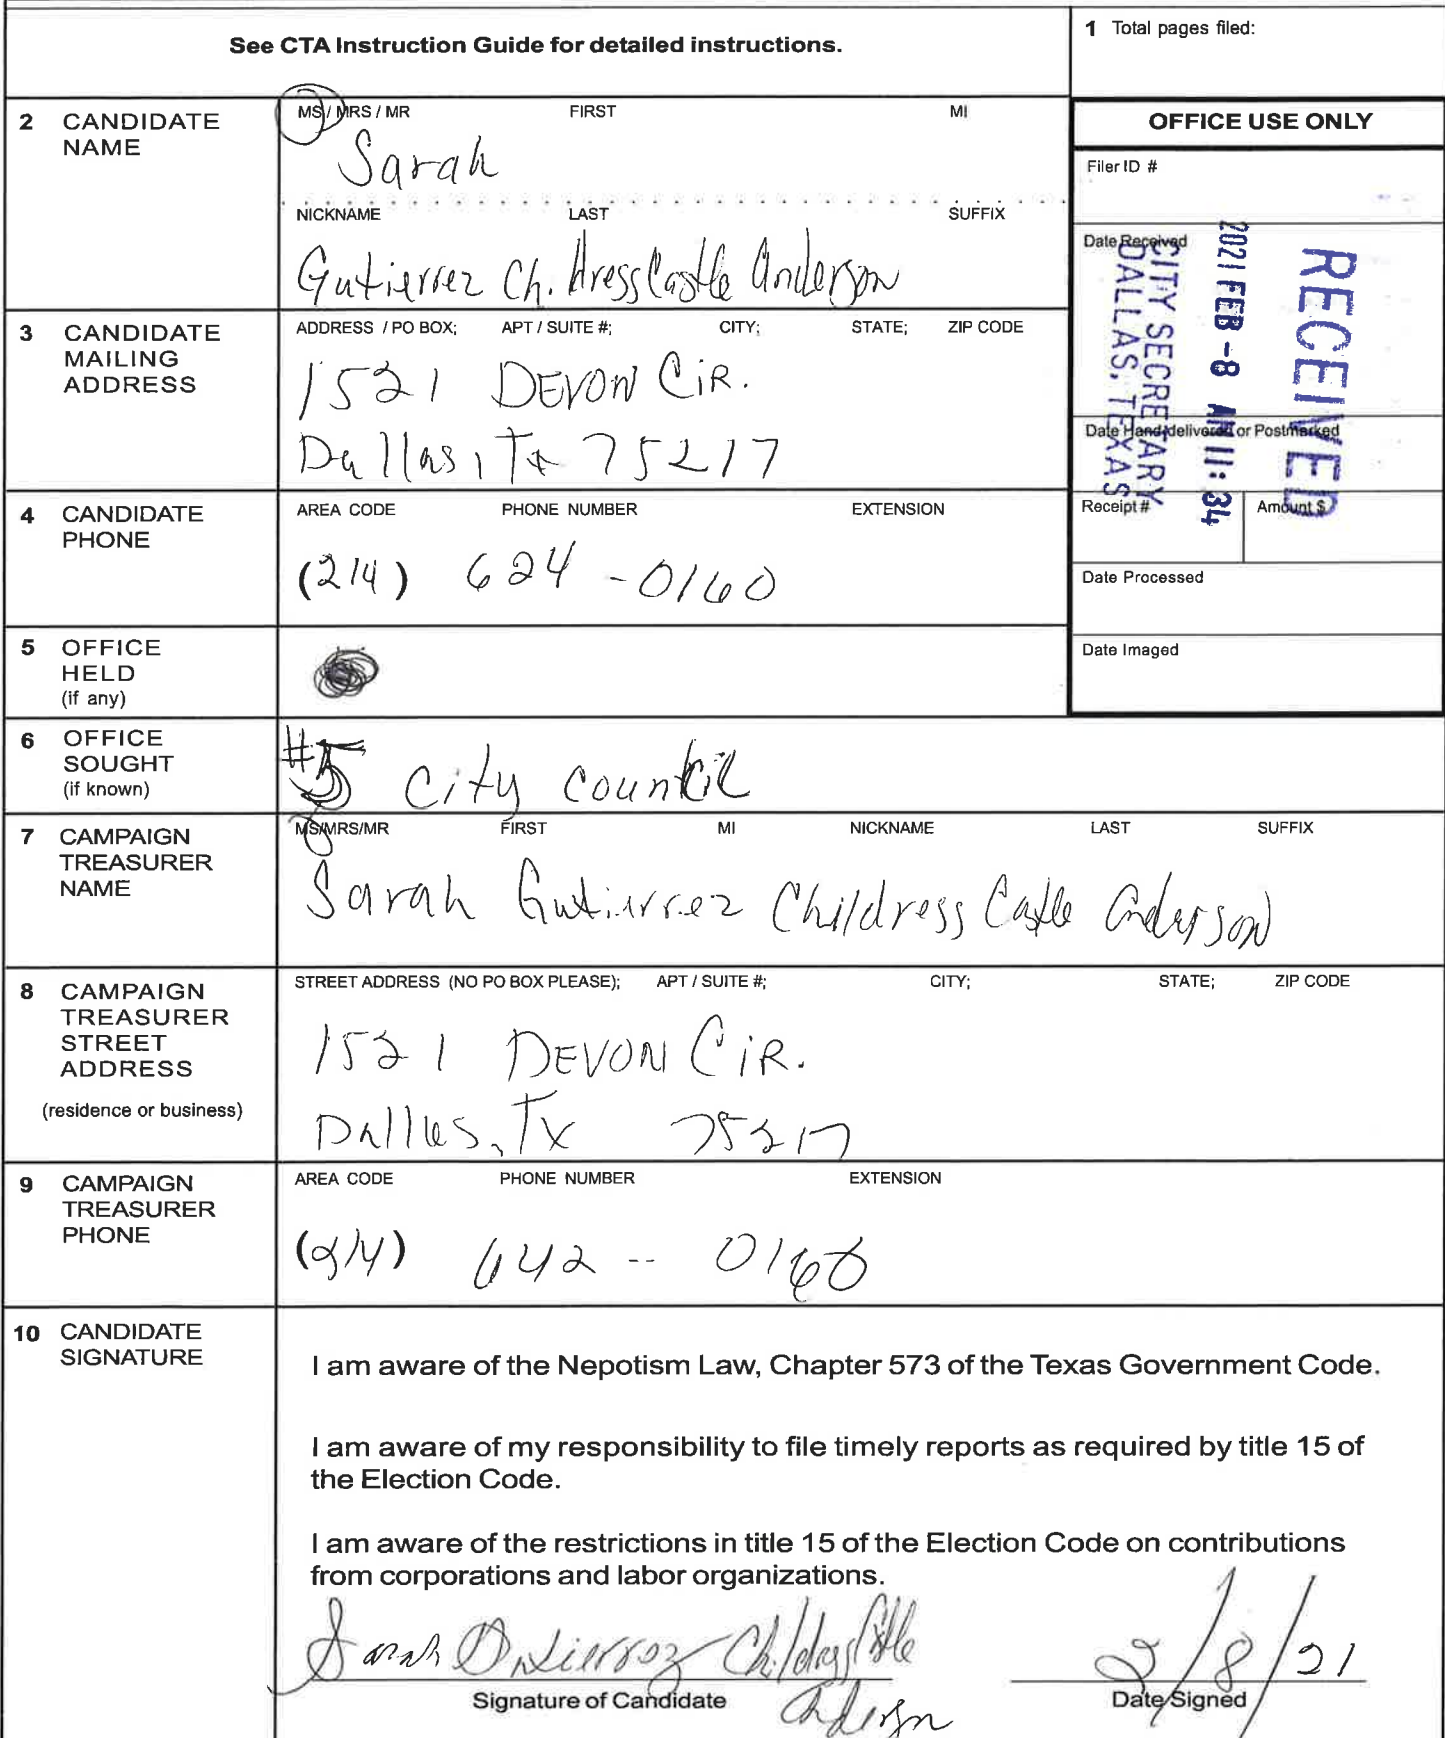 See CTA Instruction Guide for detailed instructions.
1 Total pages filed:
2 CANDIDATE NAME
MS / MRS / MR FIRST MI
Sarah
NICKNAME LAST SUFFIX
Gutierrez Childress Castle Anderson
OFFICE USE ONLY
Filer ID #
Date Received
RECEIVED
2021 FEB -8 AM 11: 34
CITY SECRETARY
DALLAS, TEXAS
Date Hand-delivered or Postmarked
Receipt #
Amount $
Date Processed
Date Imaged
3 CANDIDATE MAILING ADDRESS
ADDRESS / PO BOX; APT / SUITE #; CITY; STATE; ZIP CODE
1521 DEVON CiR.
Dallas, Tx 75217
4 CANDIDATE PHONE
AREA CODE PHONE NUMBER EXTENSION
(214) 624-0160
5 OFFICE HELD (if any)
6 OFFICE SOUGHT (if known)
#5 City Council
7 CAMPAIGN TREASURER NAME
MS/MRS/MR FIRST MI NICKNAME LAST SUFFIX
Sarah Gutierrez Childress Castle Anderson
8 CAMPAIGN TREASURER STREET ADDRESS
(residence or business)
STREET ADDRESS (NO PO BOX PLEASE); APT / SUITE #; CITY; STATE; ZIP CODE
1521 DEVON CiR.
Dallas, Tx 75217
9 CAMPAIGN TREASURER PHONE
AREA CODE PHONE NUMBER EXTENSION
(214) 642 -- 0160
10 CANDIDATE SIGNATURE
I am aware of the Nepotism Law, Chapter 573 of the Texas Government Code.
I am aware of my responsibility to file timely reports as required by title 15 of
the Election Code.
I am aware of the restrictions in title 15 of the Election Code on contributions
from corporations and labor organizations.
Sarah Gutierrez Childress Castle
Anderson
Signature of Candidate
2/8/21
Date Signed